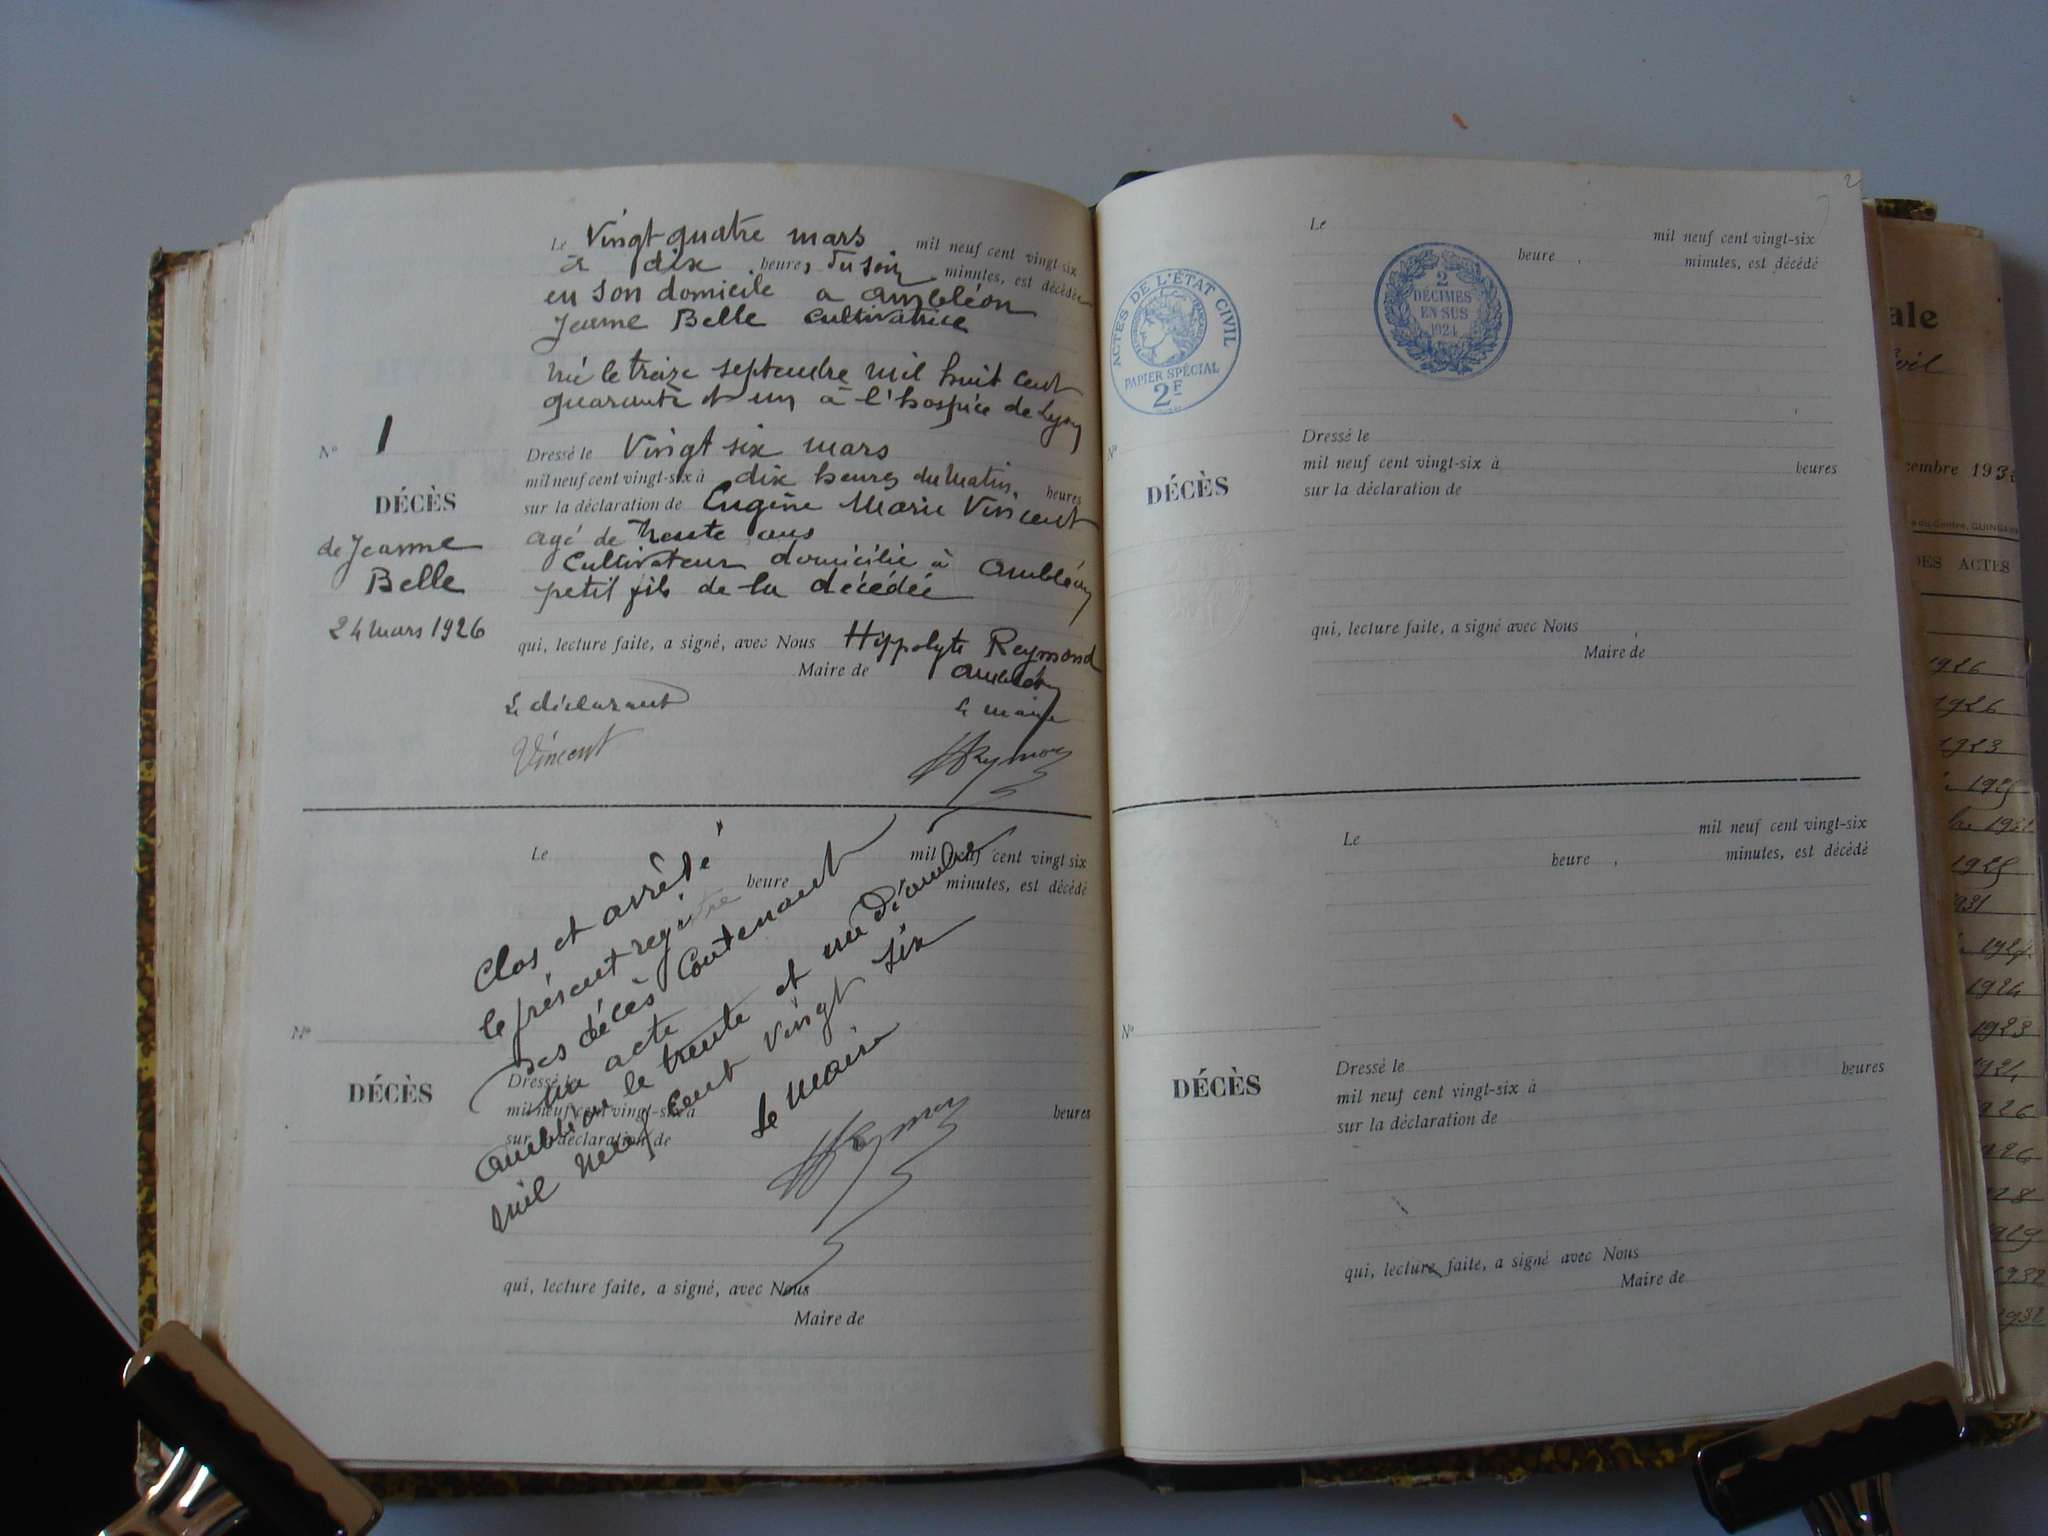 Le Vingt quatre mars mil neuf cent vingt-six
à dix heures du soir minutes, est décédée
en son domicile a ambléon
Jeanne Belle cultivatrice
né le treize septembre mil huit cent
quarante et un à l'hospice de Lyon
N° 1
Dressé le Vingt six mars
mil neuf cent vingt-six à dix heures du matin, heures
DÉCÈS
sur la déclaration de Eugène Marie Vincent
de Jeanne
agé de trente ans
Belle
Cultivateur domicilié à ambléon
petit fils de la décédée
24 mars 1926
qui, lecture faite, a signé, avec Nous Hippolyte Reymond
Maire de ambléon
Le déclarant
le maire
Vincent
HReymond
Le mil neuf cent vingt six
heure minutes, est décédé
N°
DÉCÈS
Dressé le
mil neuf cent vingt-six à heures
sur la déclaration de
qui, lecture faite, a signé, avec Nous
Maire de
Clos et arrêté
le présent registre
des décès contenant
un acte
ambléon le trente et un décembre
mil neuf cent vingt six
Le Maire
HReymond
2
Le mil neuf cent vingt-six
heure , minutes, est décédé
ACTES DE L'ÉTAT CIVIL
PAPIER SPÉCIAL
2F
2
DÉCIMES
EN SUS
1924
N°
DÉCÈS
Dressé le
mil neuf cent vingt-six à heures
sur la déclaration de
qui, lecture faite, a signé avec Nous
Maire de
Le mil neuf cent vingt-six
heure , minutes, est décédé
N°
DÉCÈS
Dressé le heures
mil neuf cent vingt-six à
sur la déclaration de
qui, lecture faite, a signé avec Nous
Maire de
ale
ivil
cembre 193
du Centre, GUINGAMP
DES ACTES
1926
1926
1923
1925
1931
1925
931
1924
1924
1923
1924
926
926
928
1929
1932
1932